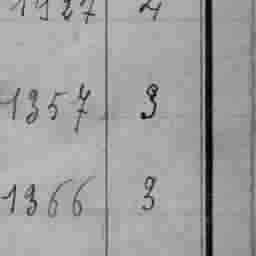 1927 4
1357 3
1366 3